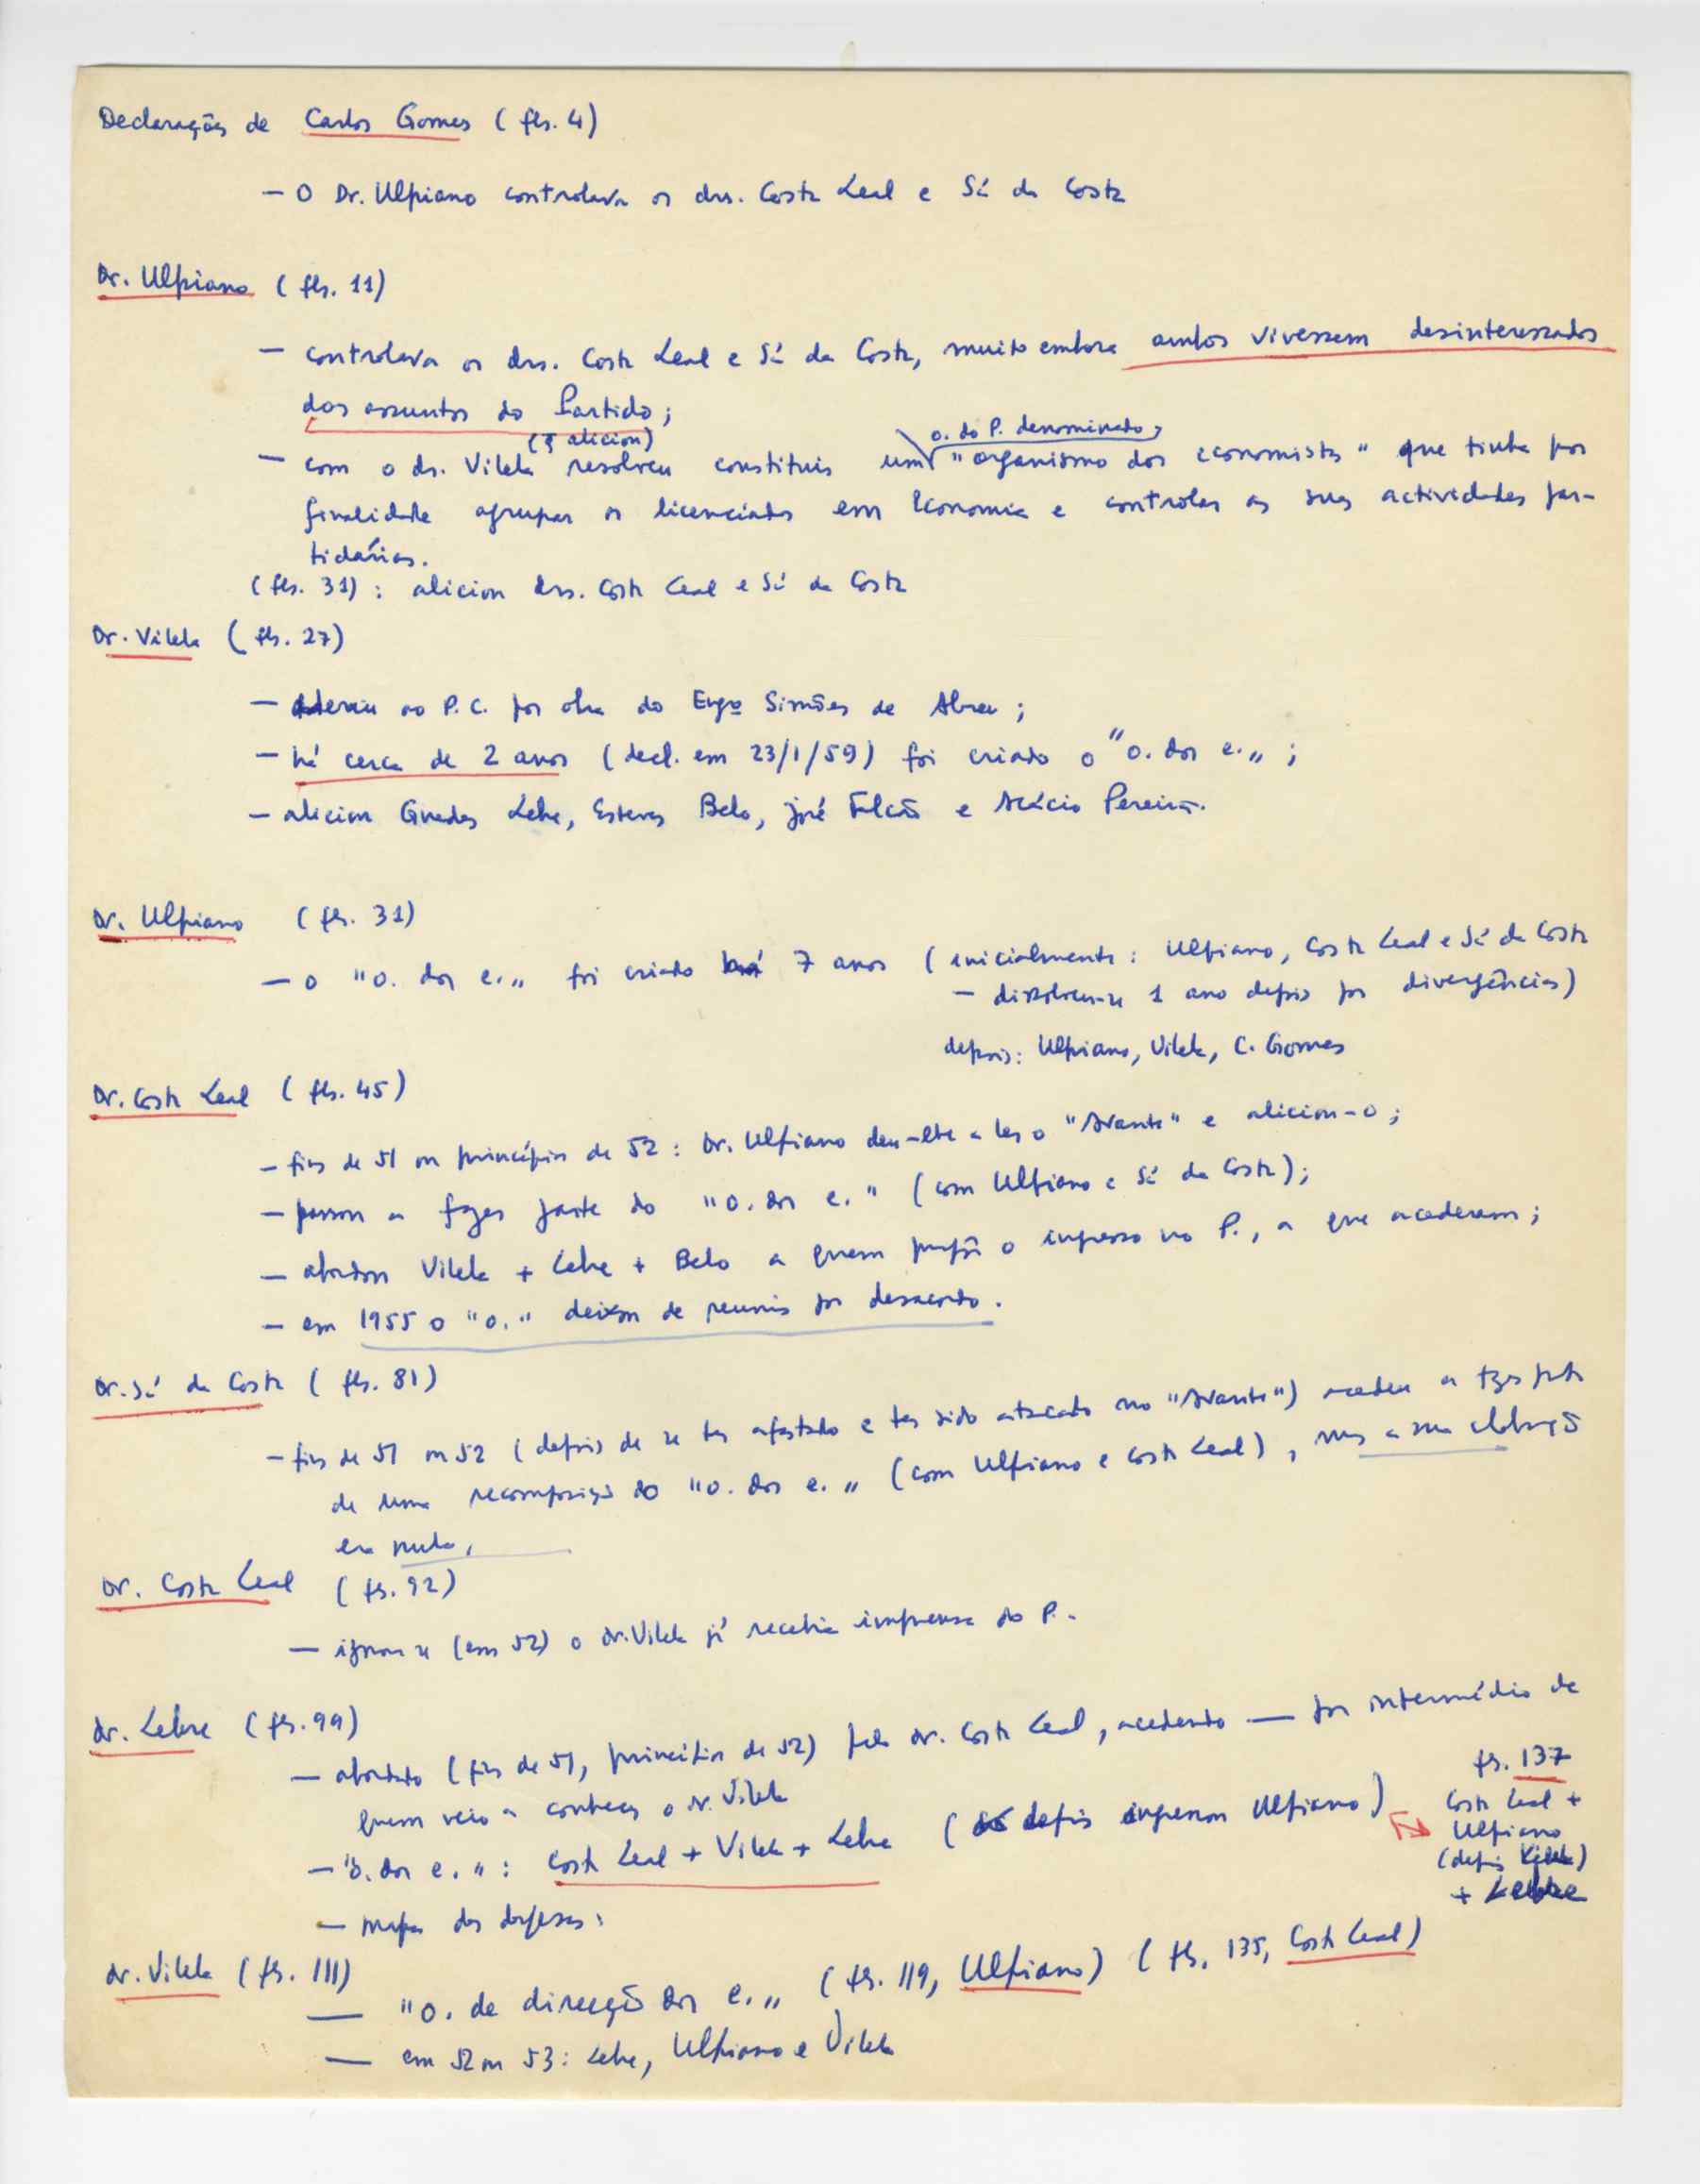 Declarações de Carlos Gomes (fls. 4)
— O Dr. Ulpiano controlava os drs. Costa Leal e Sá da Costa
Dr. Ulpiano (fls. 11)
— controlava os drs. Costa Leal e Sá da Costa, muito embora ambos vivessem desinteressados
dos assuntos do Partido;
(q aliciou) o. do P. denominado
— com o dr. Vilela resolveu constituir um "organismo dos economistas" que tinha por
finalidade agrupar os licenciados em Economia e controlar as suas actividades par-
tidárias.
(fls. 31): aliciou drs. Costa Leal e Sá da Costa
Dr. Vilela (fls. 27)
— aderiu ao P.C. por obra do Engº Simões de Abreu;
— há cerca de 2 anos (decl. em 23/1/59) foi criado o "o. dos e.";
— aliciou Guedes Lebre, Esteves Belo, José Falcão e Acácio Pereira.
Dr. Ulpiano (fls. 31)
— o "o. dos e." foi criado há 7 anos (inicialmente: Ulpiano, Costa Leal e Sá da Costa
— dissolveu-se 1 ano depois por divergências)
depois: Ulpiano, Vilela, C. Gomes
Dr. Costa Leal (fls. 45)
— fins de 51 ou princípios de 52: Dr. Ulpiano deu-lhe a ler o "Avante" e aliciou-o;
— passou a fazer parte do "o. dos e." (com Ulpiano e Sá da Costa);
— abordou Vilela + Lebre + Belo a quem propôs o ingresso no P., a que acederam;
— em 1955 o "o." deixou de reunir por desacordo.
Dr. Sá da Costa (fls. 81)
— fins de 51 ou 52 (depois de se ter afastado e ter sido atacado no "Avante") acedeu a fazer parte
de uma recomposição do "o. dos e." (com Ulpiano e Costa Leal), mas a sua colaboração
era nula.
Dr. Costa Leal (fls. 92)
— ignora se (em 52) o dr. Vilela já recebia imprensa do P.
dr. Lebre (fls. 99)
— abordado (fins de 51, princípios de 52) pelo dr. Costa Leal, acedendo — por intermédio de
quem veio a conhecer o dr. Vilela
— "o. dos e.": Costa Leal + Vilela + Lebre (depois ingressou Ulpiano)
fls. 137
Costa Leal +
Ulpiano
(depois Vilela)
+ Lebre
— mapa das despesas;
dr. Vilela (fls. 111)
— "o. de direcção dos e." (fls. 119, Ulpiano) (fls. 135, Costa Leal)
— em 52 ou 53: Lebre, Ulpiano e Vilela